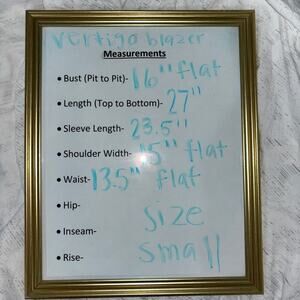 vertigo blazer
Measurements
• Bust (Pit to Pit)- 16" flat
• Length (Top to Bottom)- 27"
• Sleeve Length- 23.5"
• Shoulder Width- 15" flat
• Waist- 13.5" flat
• Hip-
size
• Inseam-
small
• Rise-